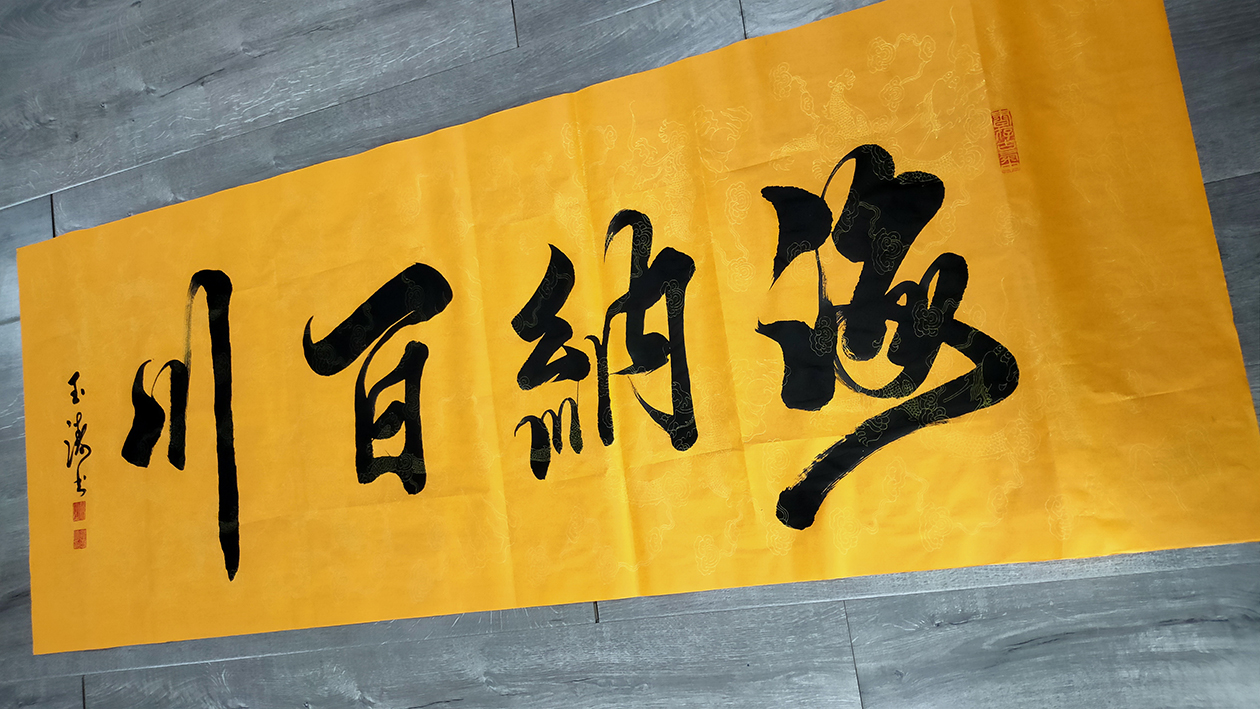 海納百川
玉濤書